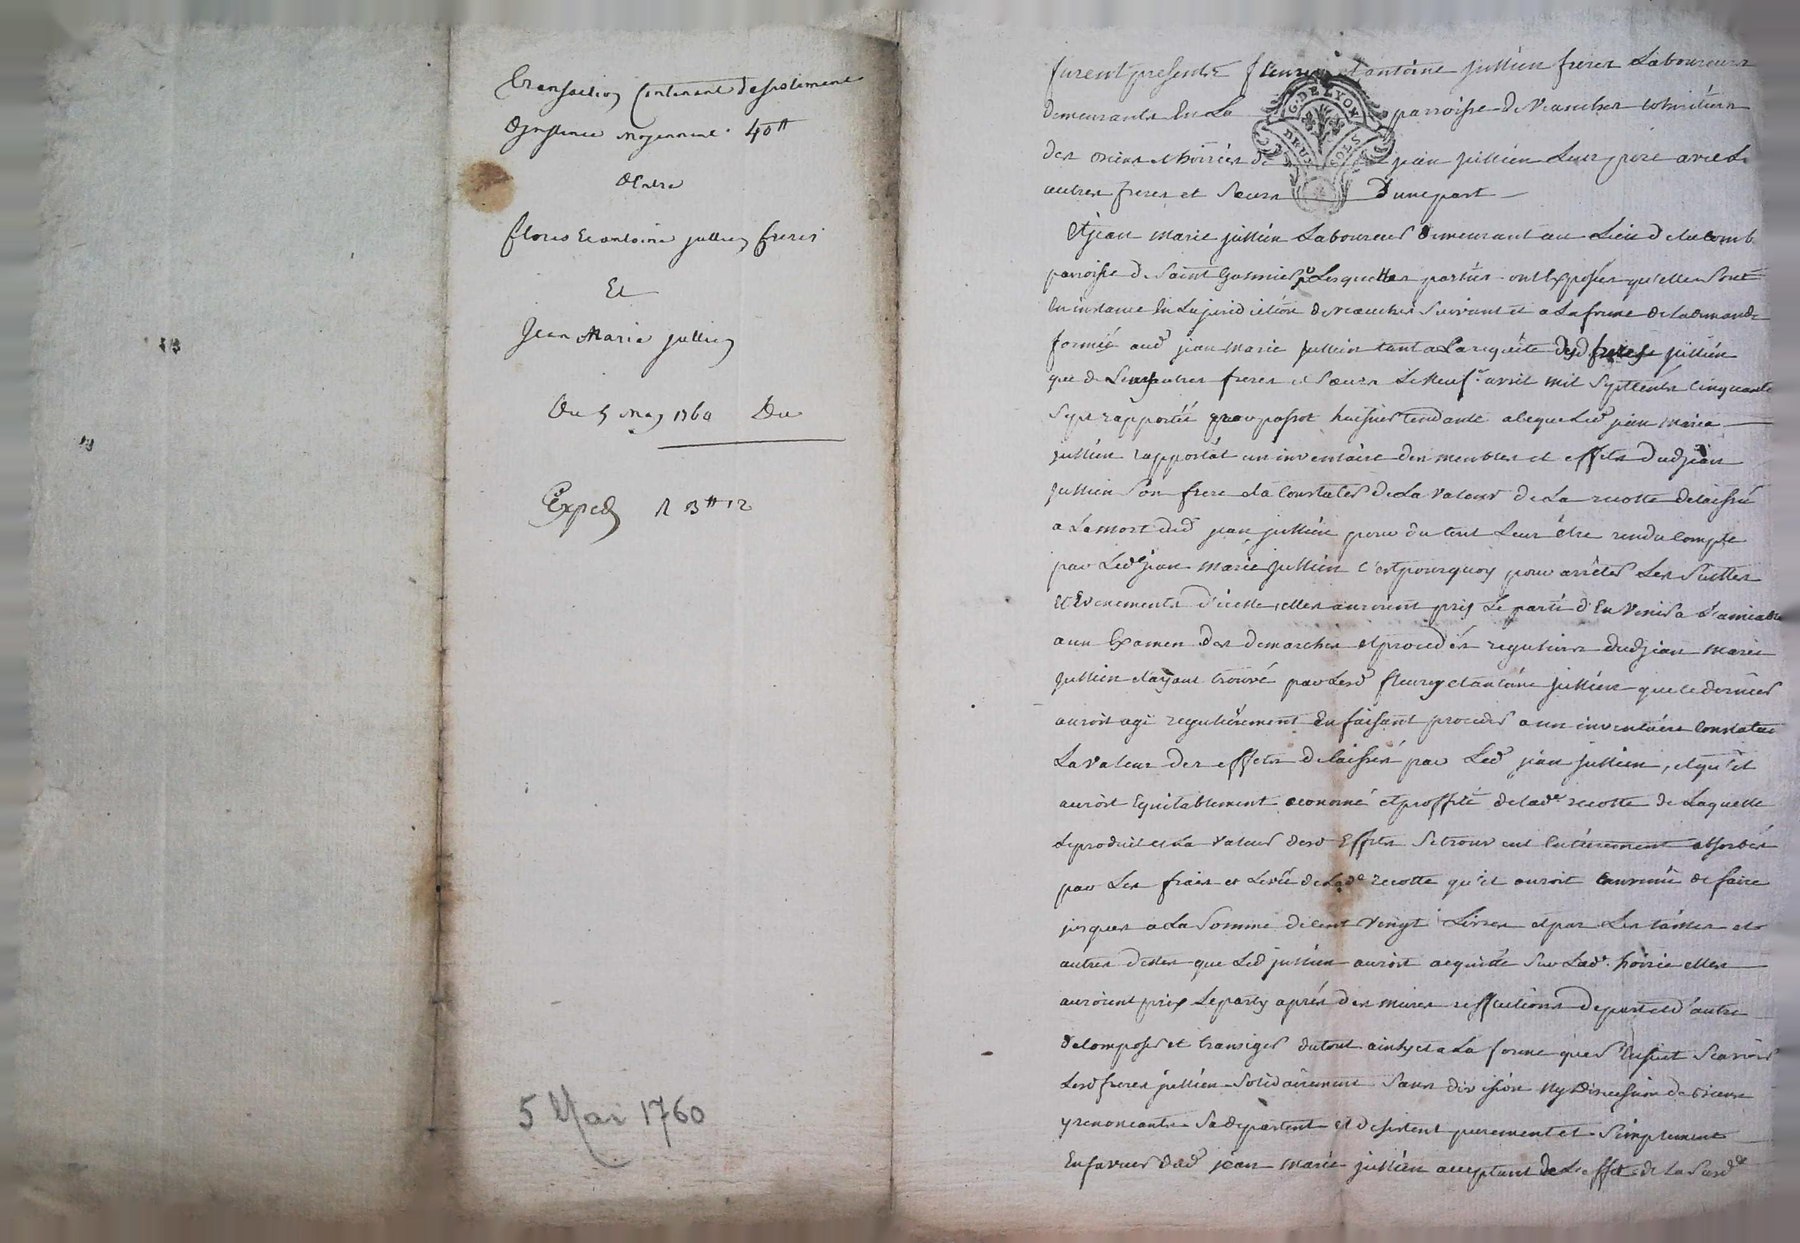 Transaction Contenant desistement
D'instance moyennant 40tt
D'Entre
fleury Et antoine jullien freres
Et
Jean Marie jullien
Du 5 May 1760 Du
Exped R 3tt 12
5 Mai 1760
furent presents fleury et antoine jullien freres Laboureurs
demeurants En La parroisse de Veauches cohéritiers
des Biens et hoiries de jean jullien Leur frere avec Le
autres freres et Sœurs D'unepart
G. DE LYON
DEUX SOLS
Et jean marie jullien Laboureur demeurant au Lieu de Lacomb
parroisse de Saint Galmier Lesquelles parties ont Exposées qu'elles Sont
En instance En La jurisdiction de Veauches Suivant et a La forme de La demande
formée aud jean marie jullien tant a La requête desd freres jullien
que de Leurs autres freres et Sœurs Le Neuf avril mil Sept Cents Cinquante
Sept rapportée par passot huissier tendante a ce que Led jean marie
jullien rapportât un inventaire des meubles et effets dud jean
jullien Son frere et a Constater de La Valeur de La recolte delaissée
a La mort dud jean jullien pour du tout Leur être rendu Compte
par Led jean marie jullien C'est pourquoy pour arrêter Les Suittes
Et Evenements d'icelle, elles auroient pris Le parti d'En Venir a L'amiable
a un Examen des demarches et procedés reguliers dud jean marie
jullien et ayant trouvé par Lesd fleury et antoine jullien que ce dernier
auroit agi regulièrement En faisant proceder a un inventaire Constatant
La Valeur des effets delaissés par Led jean jullien, et qu'il
auroit Equitablement œconomé et proffité de Lade recolte de Laquelle
Le produit et La Valeur desd Effets Se trouvent Entièrement absorbés
par Les frais et Levée de Lade recolte qu'il auroit Convenu de faire
jusques a La Somme de Cent Vingt Livres et par Les tailles et
autres dettes que Led jullien auroit acquitté Sur Lade hoirie elles
auroient pris Le party après des mures reflections de part et d'autre
de Composer et transiger du tout ainsy et a La forme que S'Ensuit Scavoir
Lesd freres jullien Solidairement Sans division Ny discussion de biens
y renoncants Se departent et desistent purement et Simplement
En faveur dud jean marie jullien acceptant de L'effet de La Susde